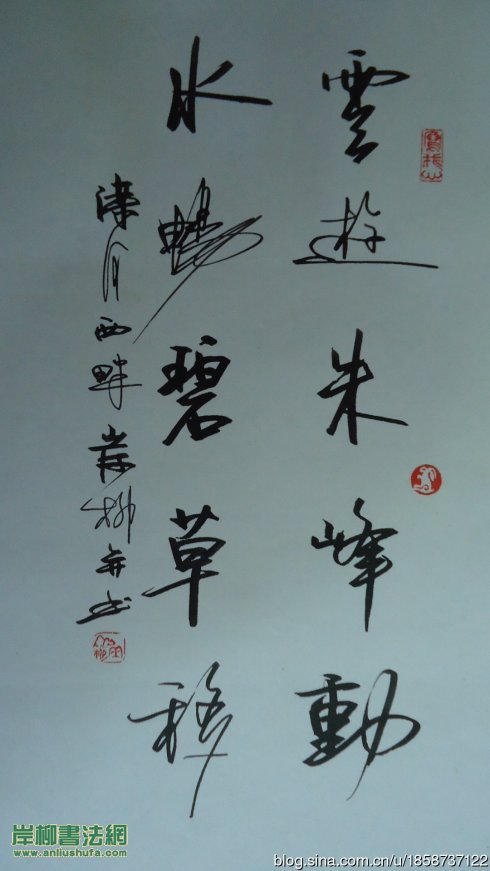 雲遊朱峰動
水暢碧草移
西畔岸柳并书
岸柳書法網
www.anliushufa.com
blog.sina.com.cn/u/1858737122